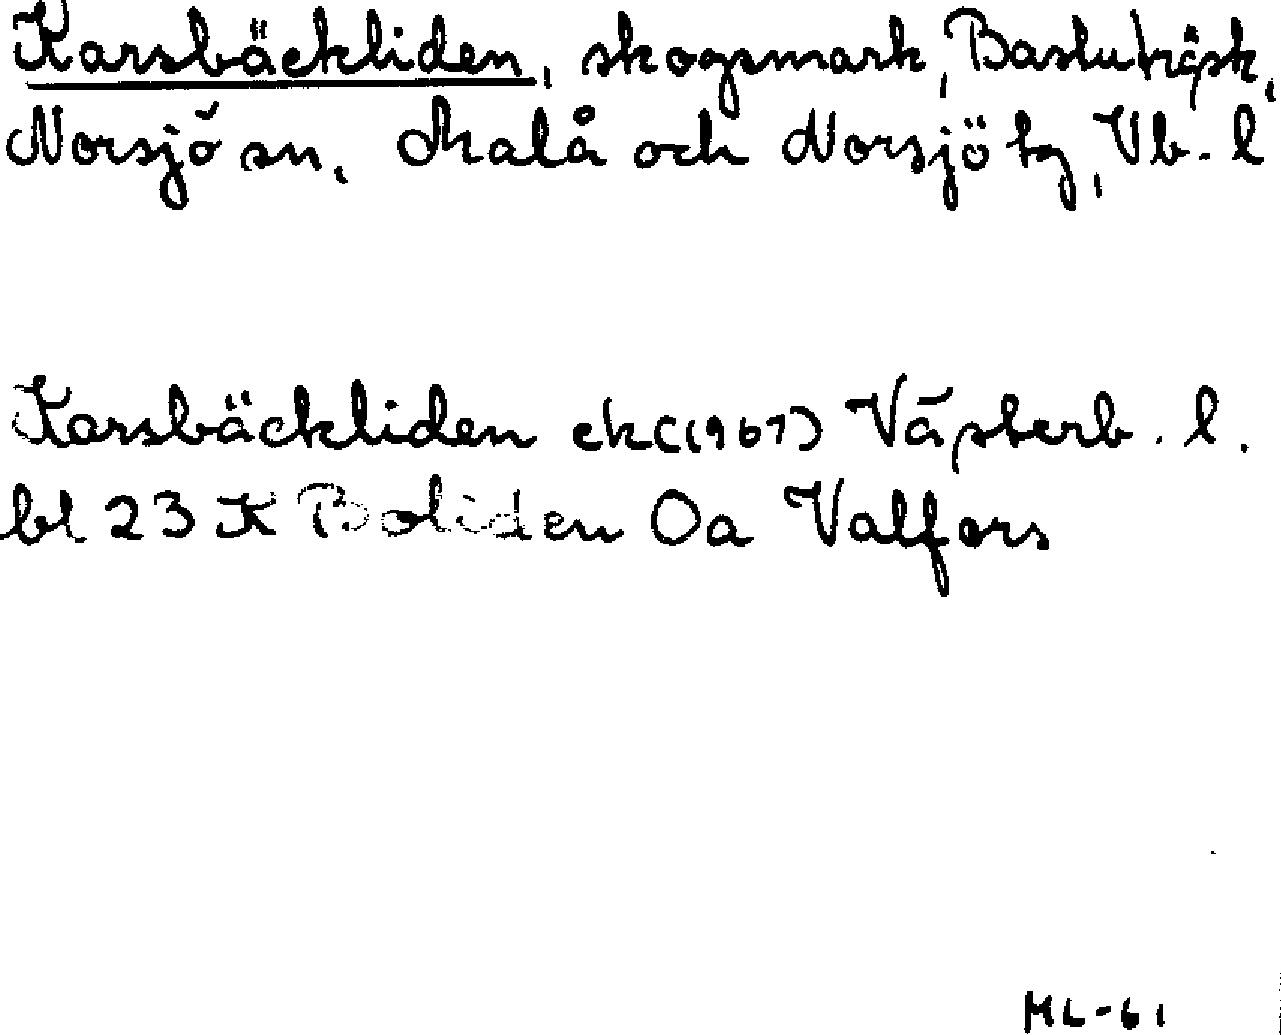 Karsbäckliden, skogsmark, Bastuträsk,
Norsjö sn, Malå och Norsjö tg, Vb. l
Karsbäckliden ek (1961) Västerb. l.
bl 23 K Boliden Oa Valfors
ML-61